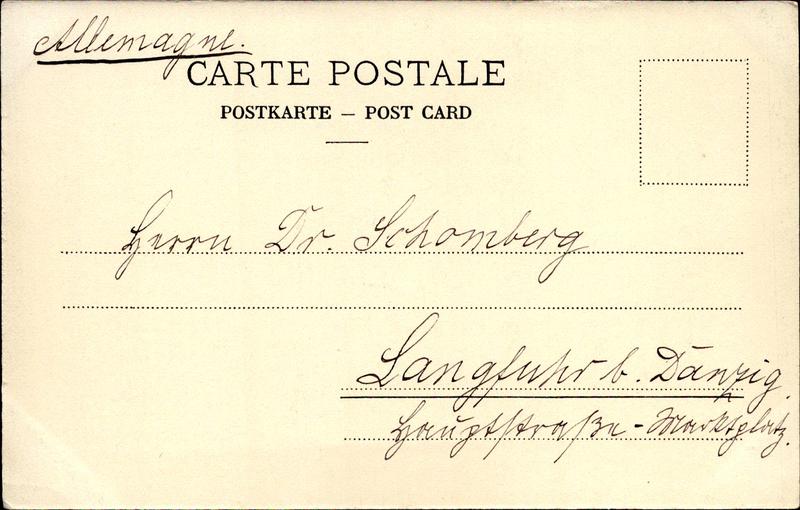 Allemagne.
CARTE POSTALE
POSTKARTE – POST CARD
Herrn Dr. Schomberg
Langfuhr b. Danzig.
Hauptstraße - Marktplatz.